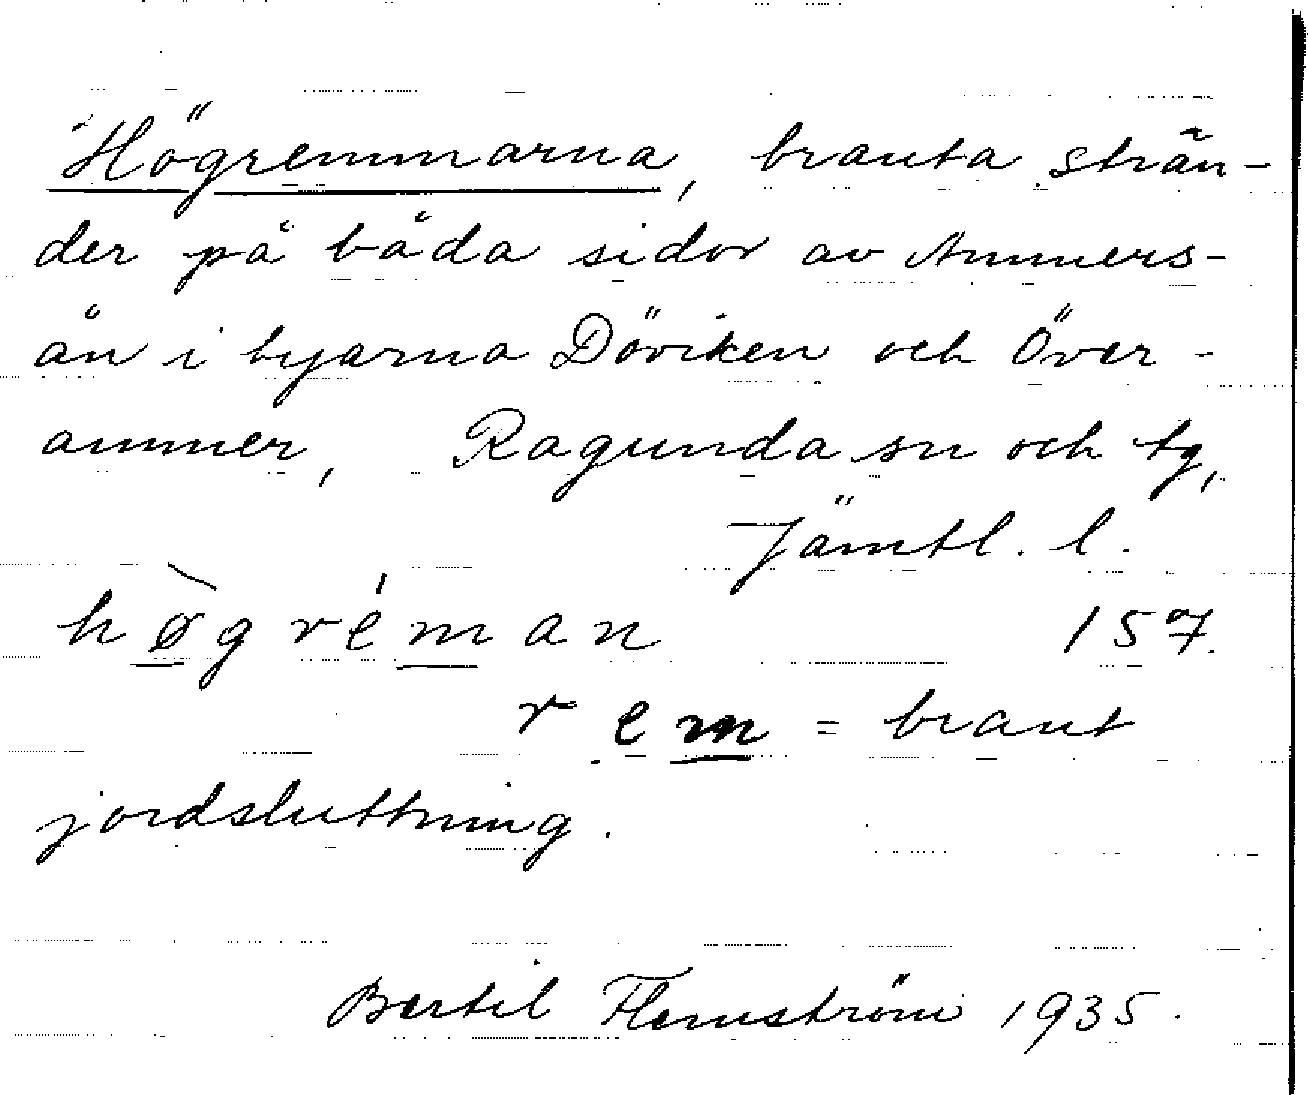 Högremmarna, branta strän-
der på båda sidor av Ammers-
ån i byarna Döviken och Över-
ammer, Ragunda sn och tg,
Jämtl. l.
hø̀gréman 157.
rem = brant
jordsluttning.
Bertil Flemström 1935.